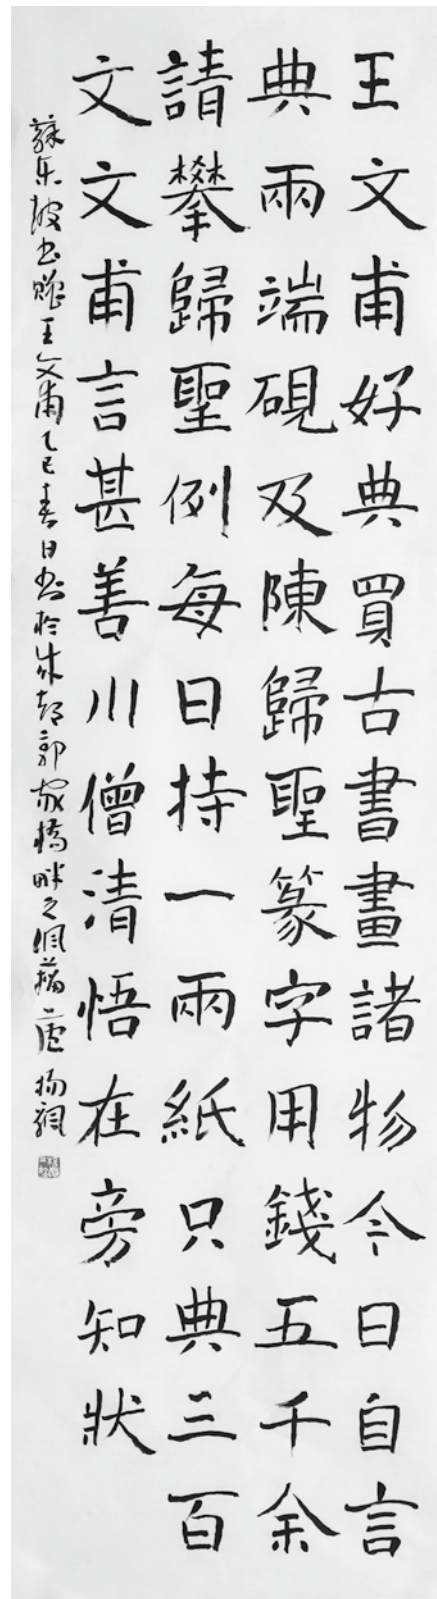 王文甫好典買古書畫諸物今日自言
典兩端硯及陳歸聖篆字用錢五千余
請攀歸聖例每日持一兩紙只典三百
文文甫言甚善川僧清悟在旁知狀
蘇東坡書贈王文甫乙巳春日書於成都郭家橋畔之佩蘅蘆楊